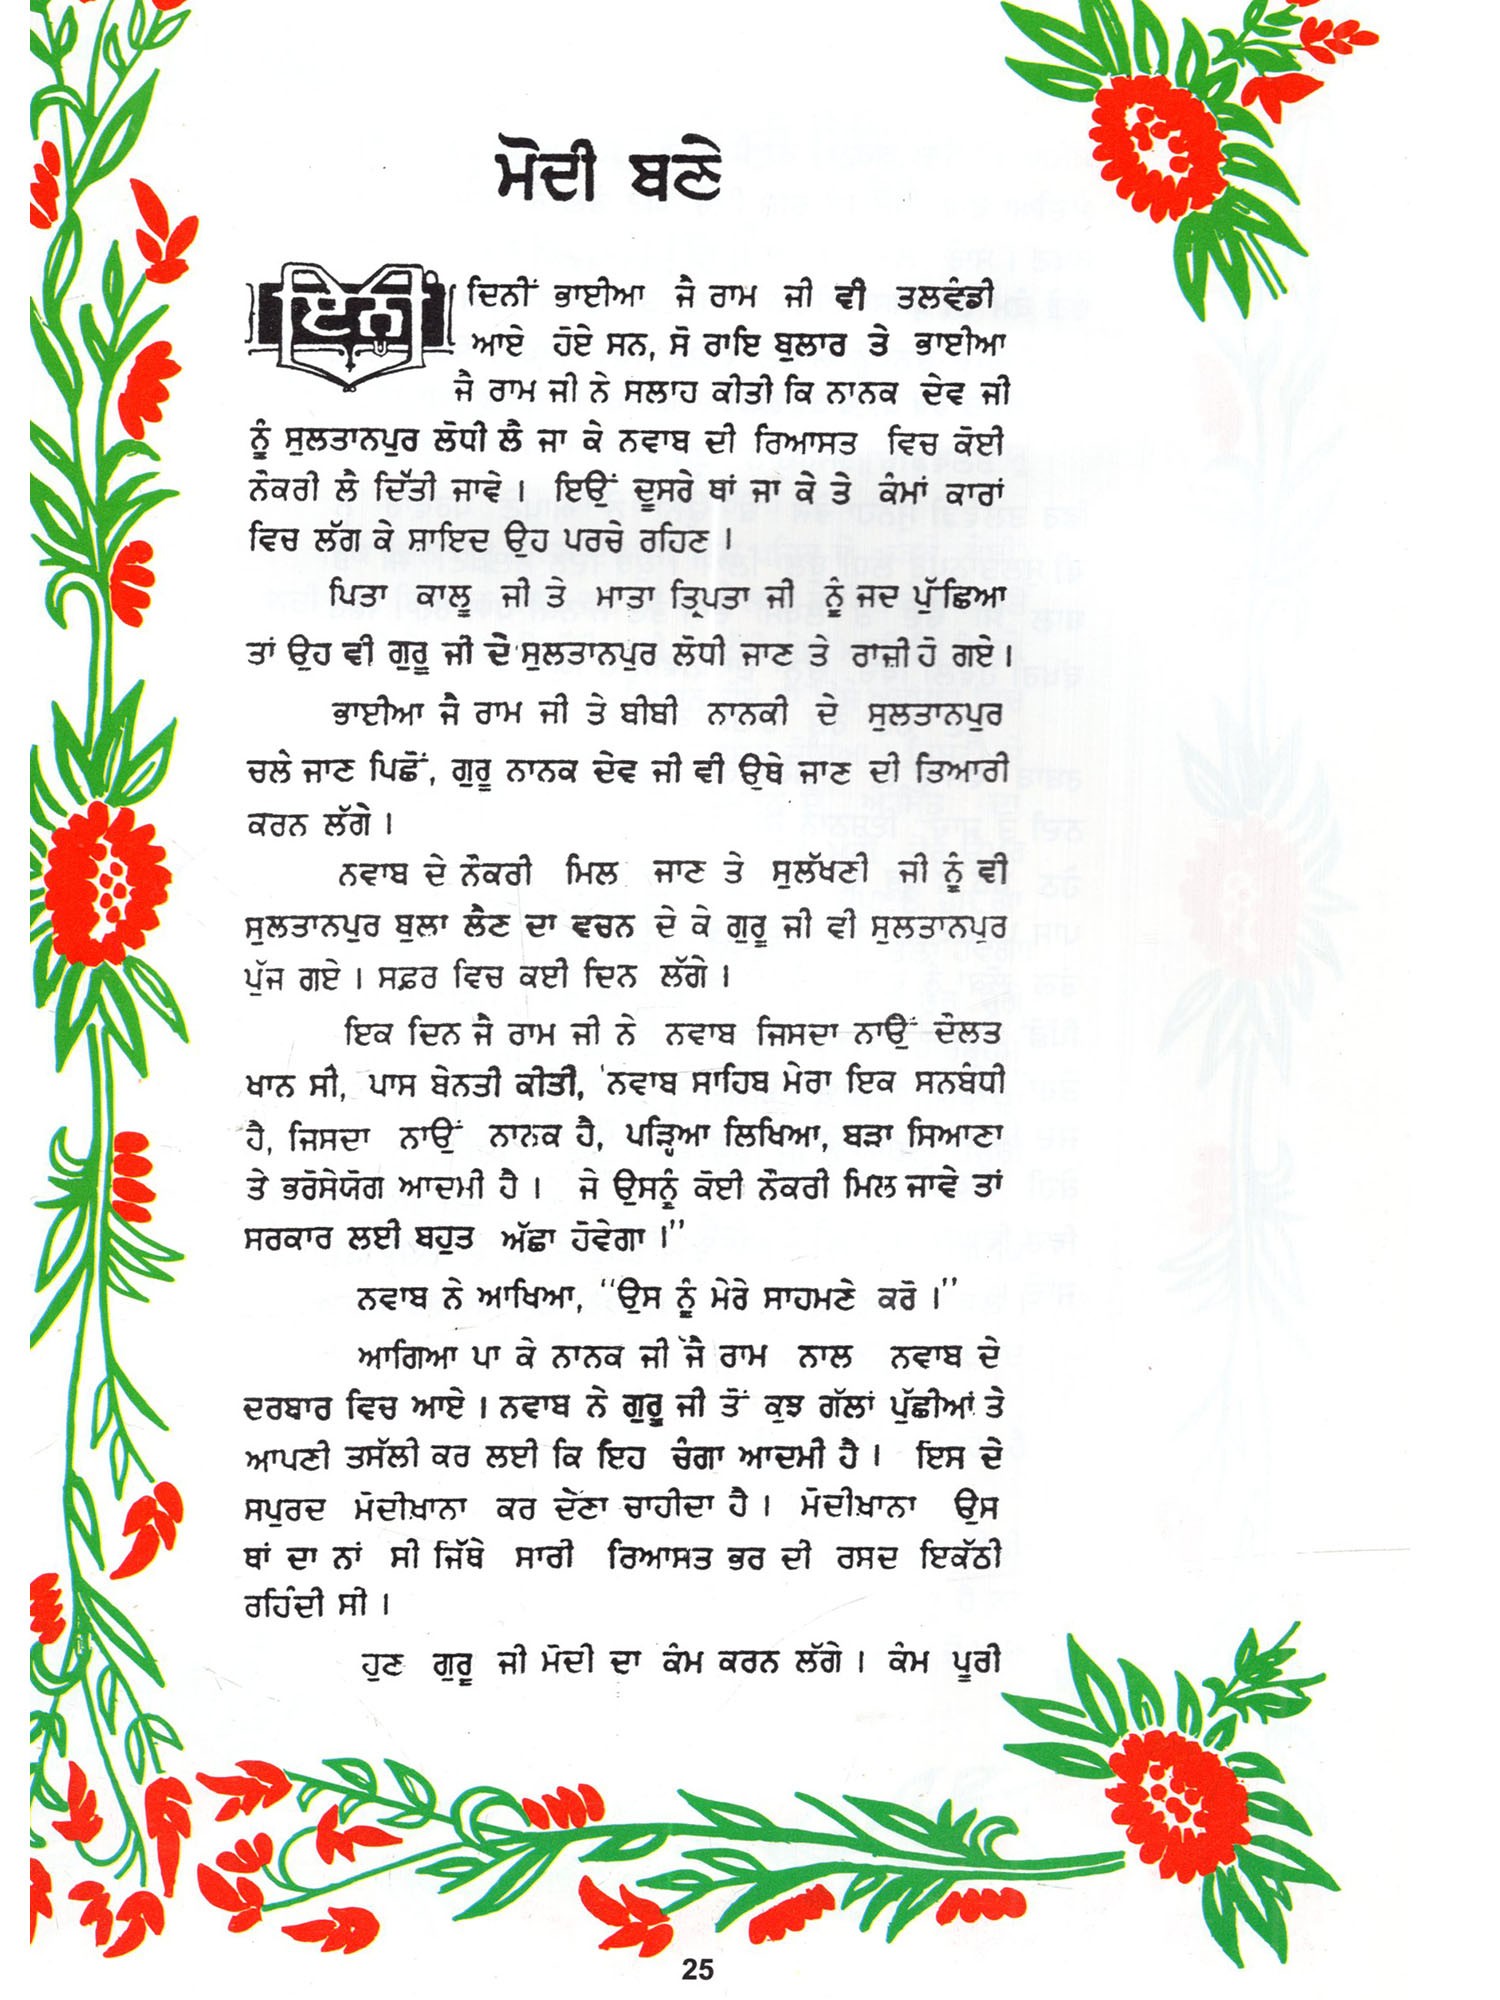 ਮੋਦੀ ਬਣੇ
ਇਨੀ ਦਿਨੀਂ ਭਾਈਆ ਜੈ ਰਾਮ ਜੀ ਵੀ ਤਲਵੰਡੀ
ਆਏ ਹੋਏ ਸਨ, ਸੋ ਰਾਇ ਬੁਲਾਰ ਤੇ ਭਾਈਆ
ਜੈ ਰਾਮ ਜੀ ਨੇ ਸਲਾਹ ਕੀਤੀ ਕਿ ਨਾਨਕ ਦੇਵ ਜੀ
ਨੂੰ ਸੁਲਤਾਨਪੁਰ ਲੋਧੀ ਲੈ ਜਾ ਕੇ ਨਵਾਬ ਦੀ ਰਿਆਸਤ ਵਿਚ ਕੋਈ
ਨੌਕਰੀ ਲੈ ਦਿੱਤੀ ਜਾਵੇ। ਇਉਂ ਦੂਸਰੇ ਥਾਂ ਜਾ ਕੇ ਤੇ ਕੰਮਾਂ ਕਾਰਾਂ
ਵਿਚ ਲੱਗ ਕੇ ਸ਼ਾਇਦ ਉਹ ਪਰਚੇ ਰਹਿਣ।
ਪਿਤਾ ਕਾਲੂ ਜੀ ਤੇ ਮਾਤਾ ਤ੍ਰਿਪਤਾ ਜੀ ਨੂੰ ਜਦ ਪੁੱਛਿਆ
ਤਾਂ ਉਹ ਵੀ ਗੁਰੂ ਜੀ ਦੇ ਸੁਲਤਾਨਪੁਰ ਲੋਧੀ ਜਾਣ ਤੇ ਰਾਜ਼ੀ ਹੋ ਗਏ।
ਭਾਈਆ ਜੈ ਰਾਮ ਜੀ ਤੇ ਬੀਬੀ ਨਾਨਕੀ ਦੇ ਸੁਲਤਾਨਪੁਰ
ਚਲੇ ਜਾਣ ਪਿਛੋਂ, ਗੁਰੂ ਨਾਨਕ ਦੇਵ ਜੀ ਵੀ ਉਥੇ ਜਾਣ ਦੀ ਤਿਆਰੀ
ਕਰਨ ਲੱਗੇ।
ਨਵਾਬ ਦੇ ਨੌਕਰੀ ਮਿਲ ਜਾਣ ਤੇ ਸੁਲੱਖਣੀ ਜੀ ਨੂੰ ਵੀ
ਸੁਲਤਾਨਪੁਰ ਬੁਲਾ ਲੈਣ ਦਾ ਵਚਨ ਦੇ ਕੇ ਗੁਰੂ ਜੀ ਵੀ ਸੁਲਤਾਨਪੁਰ
ਪੁੱਜ ਗਏ। ਸਫ਼ਰ ਵਿਚ ਕਈ ਦਿਨ ਲੱਗੇ।
ਇਕ ਦਿਨ ਜੈ ਰਾਮ ਜੀ ਨੇ ਨਵਾਬ ਜਿਸਦਾ ਨਾਉਂ ਦੌਲਤ
ਖਾਨ ਸੀ, ਪਾਸ ਬੇਨਤੀ ਕੀਤੀ, 'ਨਵਾਬ ਸਾਹਿਬ ਮੇਰਾ ਇਕ ਸਨਬੰਧੀ
ਹੈ, ਜਿਸਦਾ ਨਾਉਂ ਨਾਨਕ ਹੈ, ਪੜ੍ਹਿਆ ਲਿਖਿਆ, ਬੜਾ ਸਿਆਣਾ
ਤੇ ਭਰੋਸੇਯੋਗ ਆਦਮੀ ਹੈ। ਜੇ ਉਸਨੂੰ ਕੋਈ ਨੌਕਰੀ ਮਿਲ ਜਾਵੇ ਤਾਂ
ਸਰਕਾਰ ਲਈ ਬਹੁਤ ਅੱਛਾ ਹੋਵੇਗਾ।"
ਨਵਾਬ ਨੇ ਆਖਿਆ, "ਉਸ ਨੂੰ ਮੇਰੇ ਸਾਹਮਣੇ ਕਰੋ।"
ਆਗਿਆ ਪਾ ਕੇ ਨਾਨਕ ਜੀ ਜੈ ਰਾਮ ਨਾਲ ਨਵਾਬ ਦੇ
ਦਰਬਾਰ ਵਿਚ ਆਏ। ਨਵਾਬ ਨੇ ਗੁਰੂ ਜੀ ਤੋਂ ਕੁਝ ਗੱਲਾਂ ਪੁੱਛੀਆਂ ਤੇ
ਆਪਣੀ ਤਸੱਲੀ ਕਰ ਲਈ ਕਿ ਇਹ ਚੰਗਾ ਆਦਮੀ ਹੈ। ਇਸ ਦੇ
ਸਪੁਰਦ ਮੋਦੀਖ਼ਾਨਾ ਕਰ ਦੇਣਾ ਚਾਹੀਦਾ ਹੈ। ਮੋਦੀਖ਼ਾਨਾ ਉਸ
ਥਾਂ ਦਾ ਨਾਂ ਸੀ ਜਿੱਥੇ ਸਾਰੀ ਰਿਆਸਤ ਭਰ ਦੀ ਰਸਦ ਇਕੱਠੀ
ਰਹਿੰਦੀ ਸੀ।
ਹੁਣ ਗੁਰੂ ਜੀ ਮੋਦੀ ਦਾ ਕੰਮ ਕਰਨ ਲੱਗੇ। ਕੰਮ ਪੂਰੀ
25